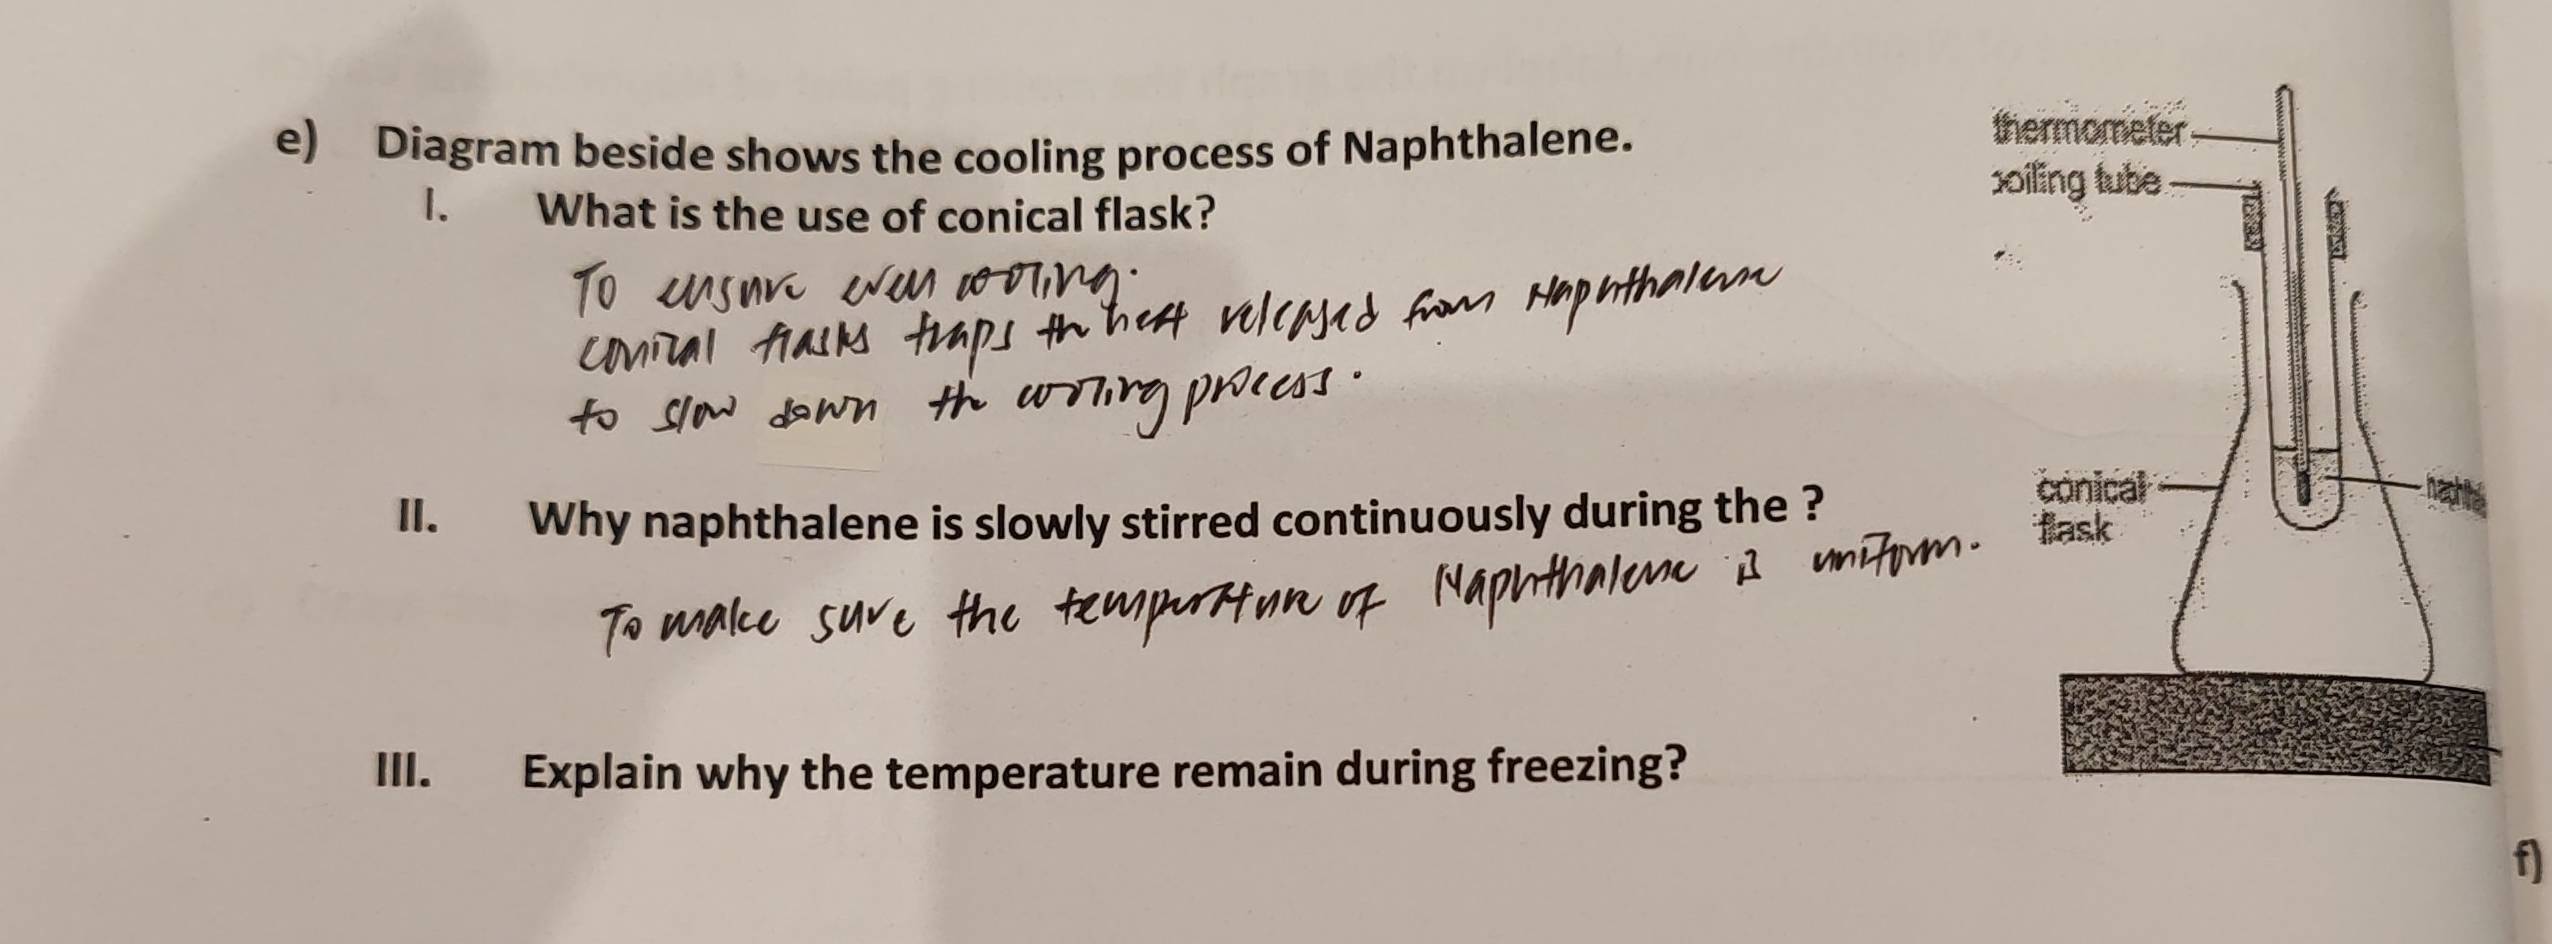 e) Diagram beside shows the cooling process of Naphthalene.
I. What is the use of conical flask?
To ensure even cooling.
conical flasks traps the heat released from Naphthalene
to slow down the cooling process.
II. Why naphthalene is slowly stirred continuously during the ?
To make sure the temperature of Naphthalene is uniform.
III. Explain why the temperature remain during freezing?
thermometer
boiling tube
conical
flask
f)